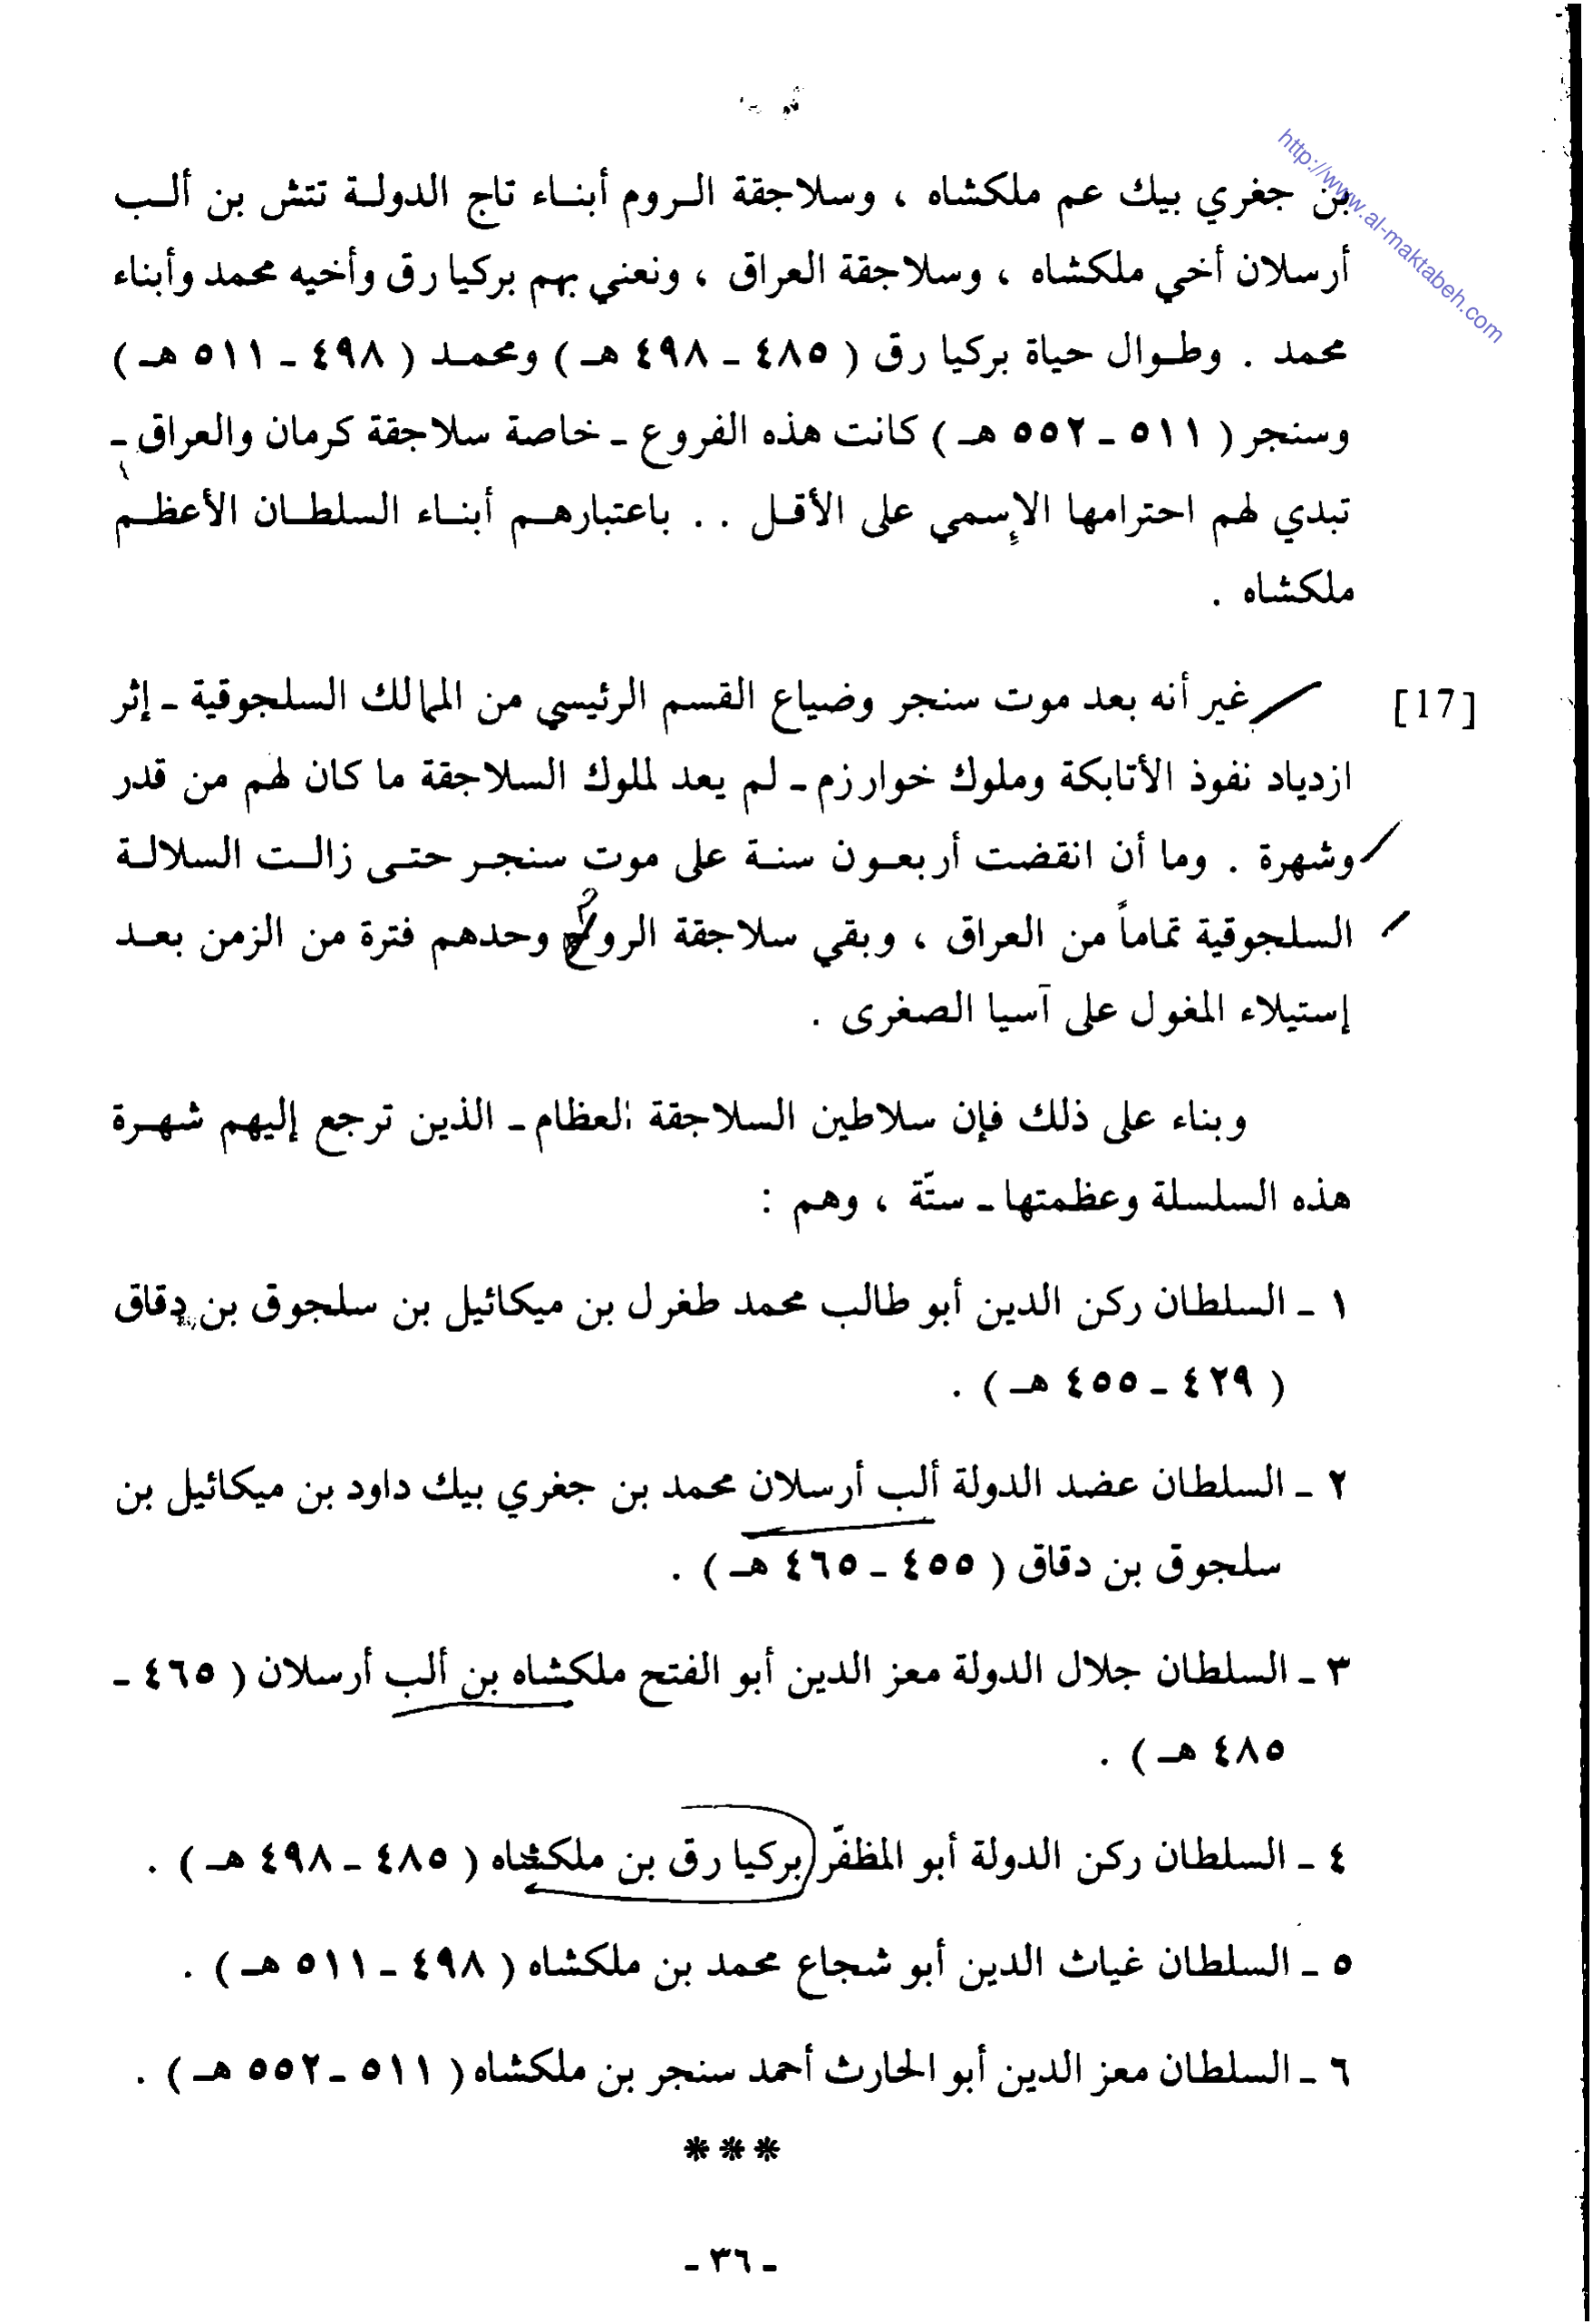 http://www.al-maktabeh.com
بن جغري بيك عم ملكشاه ، وسلاجقة الروم أبناء تاج الدولة تتش بن ألب
أرسلان أخي ملكشاه ، وسلاجقة العراق ، ونعني بهم بركيا رق وأخيه محمد وأبناء
محمد . وطوال حياة بركيا رق ( ٤٨٥ ـ ٤٩٨ هـ ) ومحمد ( ٤٩٨ ـ ٥١١ هـ )
وسنجر ( ٥١١ ـ ٥٥٢ هـ ) كانت هذه الفروع ـ خاصة سلاجقة كرمان والعراق ـ
تبدي لهم احترامها الإسمي على الأقل . . باعتبارهم أبناء السلطان الأعظم
ملكشاه .
[17] غير أنه بعد موت سنجر وضياع القسم الرئيسي من الممالك السلجوقية ـ إثر
ازدياد نفوذ الأتابكة وملوك خوارزم ـ لم يعد لملوك السلاجقة ما كان لهم من قدر
وشهرة . وما أن انقضت أربعون سنة على موت سنجر حتى زالت السلالة
السلجوقية تماماً من العراق ، وبقي سلاجقة الروم وحدهم فترة من الزمن بعد
إستيلاء المغول على آسيا الصغرى .
وبناء على ذلك فإن سلاطين السلاجقة العظام ـ الذين ترجع إليهم شهرة
هذه السلسلة وعظمتها ـ ستّة ، وهم :
١ ـ السلطان ركن الدين أبو طالب محمد طغرل بن ميكائيل بن سلجوق بن دقاق
( ٤٢٩ ـ ٤٥٥ هـ ) .
٢ ـ السلطان عضد الدولة ألب أرسلان محمد بن جغري بيك داود بن ميكائيل بن
سلجوق بن دقاق ( ٤٥٥ ـ ٤٦٥ هـ ) .
٣ ـ السلطان جلال الدولة معز الدين أبو الفتح ملكشاه بن ألب أرسلان ( ٤٦٥ ـ
٤٨٥ هـ ) .
٤ ـ السلطان ركن الدولة أبو المظفّر بركيا رق بن ملكشاه ( ٤٨٥ ـ ٤٩٨ هـ ) .
٥ ـ السلطان غياث الدين أبو شجاع محمد بن ملكشاه ( ٤٩٨ ـ ٥١١ هـ ) .
٦ ـ السلطان معز الدين أبو الحارث أحمد سنجر بن ملكشاه ( ٥١١ ـ ٥٥٢ هـ ) .
***
ـ ٣٦ ـ